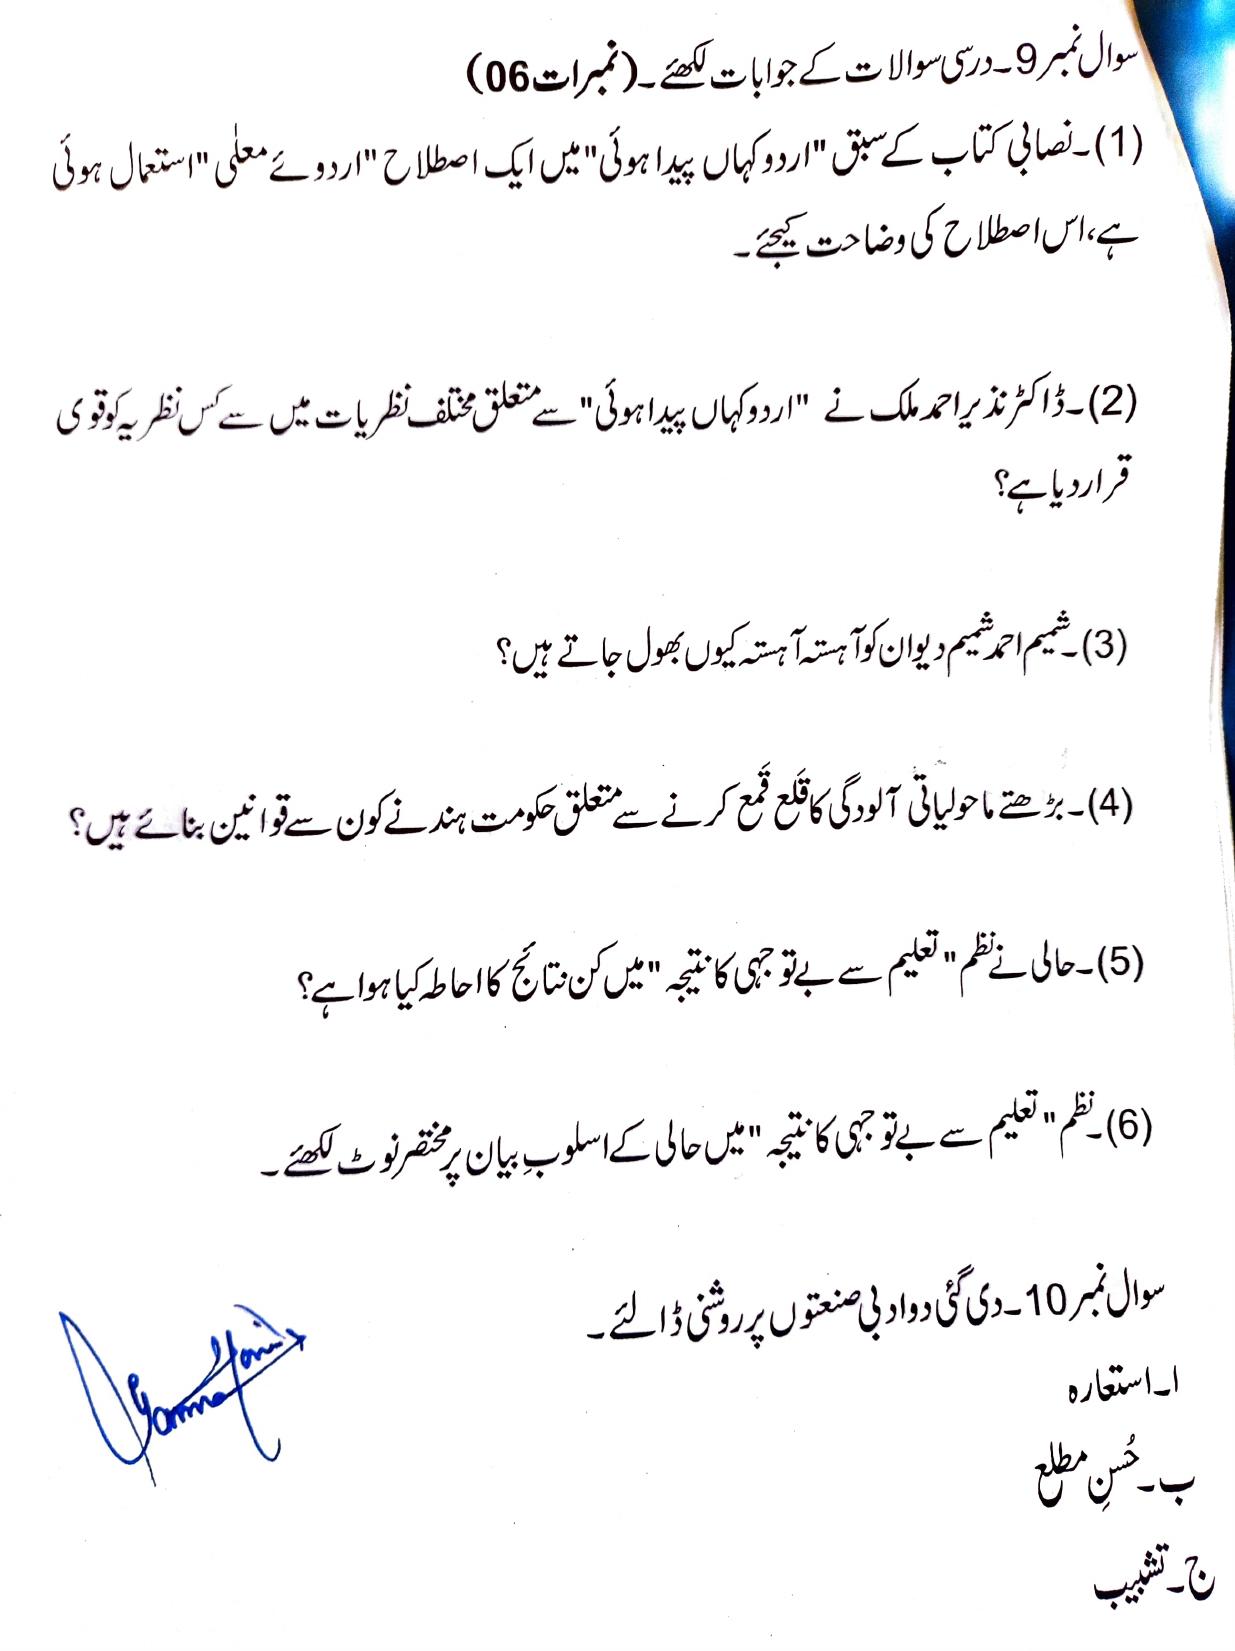 سوال نمبر 9۔ درسی سوالات کے جوابات لکھئے۔ (نمبرات 06)
(1)۔ نصابی کتاب کے سبق "اردو کہاں پیدا ہوئی" میں ایک اصطلاح "اردوئے معلٰی" استعمال ہوئی
ہے، اس اصطلاح کی وضاحت کیجئے۔
(2)۔ ڈاکٹر نذیر احمد ملک نے "اردو کہاں پیدا ہوئی" سے متعلق مختلف نظریات میں سے کس نظریہ کو قوی
قرار دیا ہے؟
(3)۔ شمیم احمد شمیم دیوان کو آہستہ آہستہ کیوں بھول جاتے ہیں؟
(4)۔ بڑھتے ماحولیاتی آلودگی کا قَلع قَمع کرنے سے متعلق حکومت ہند نے کون سے قوانین بنائے ہیں؟
(5)۔ حالی نے نظم "تعلیم سے بے توجہی کا نتیجہ" میں کن نتائج کا احاطہ کیا ہوا ہے؟
(6)۔ نظم "تعلیم سے بے توجہی کا نتیجہ" میں حالی کے اسلوبِ بیان پر مختصر نوٹ لکھئے۔
سوال نمبر 10۔ دی گئی دو ادبی صنعتوں پر روشنی ڈالئے۔
ا۔ استعارہ
ب۔ حُسنِ مطلع
ج۔ تشبیب